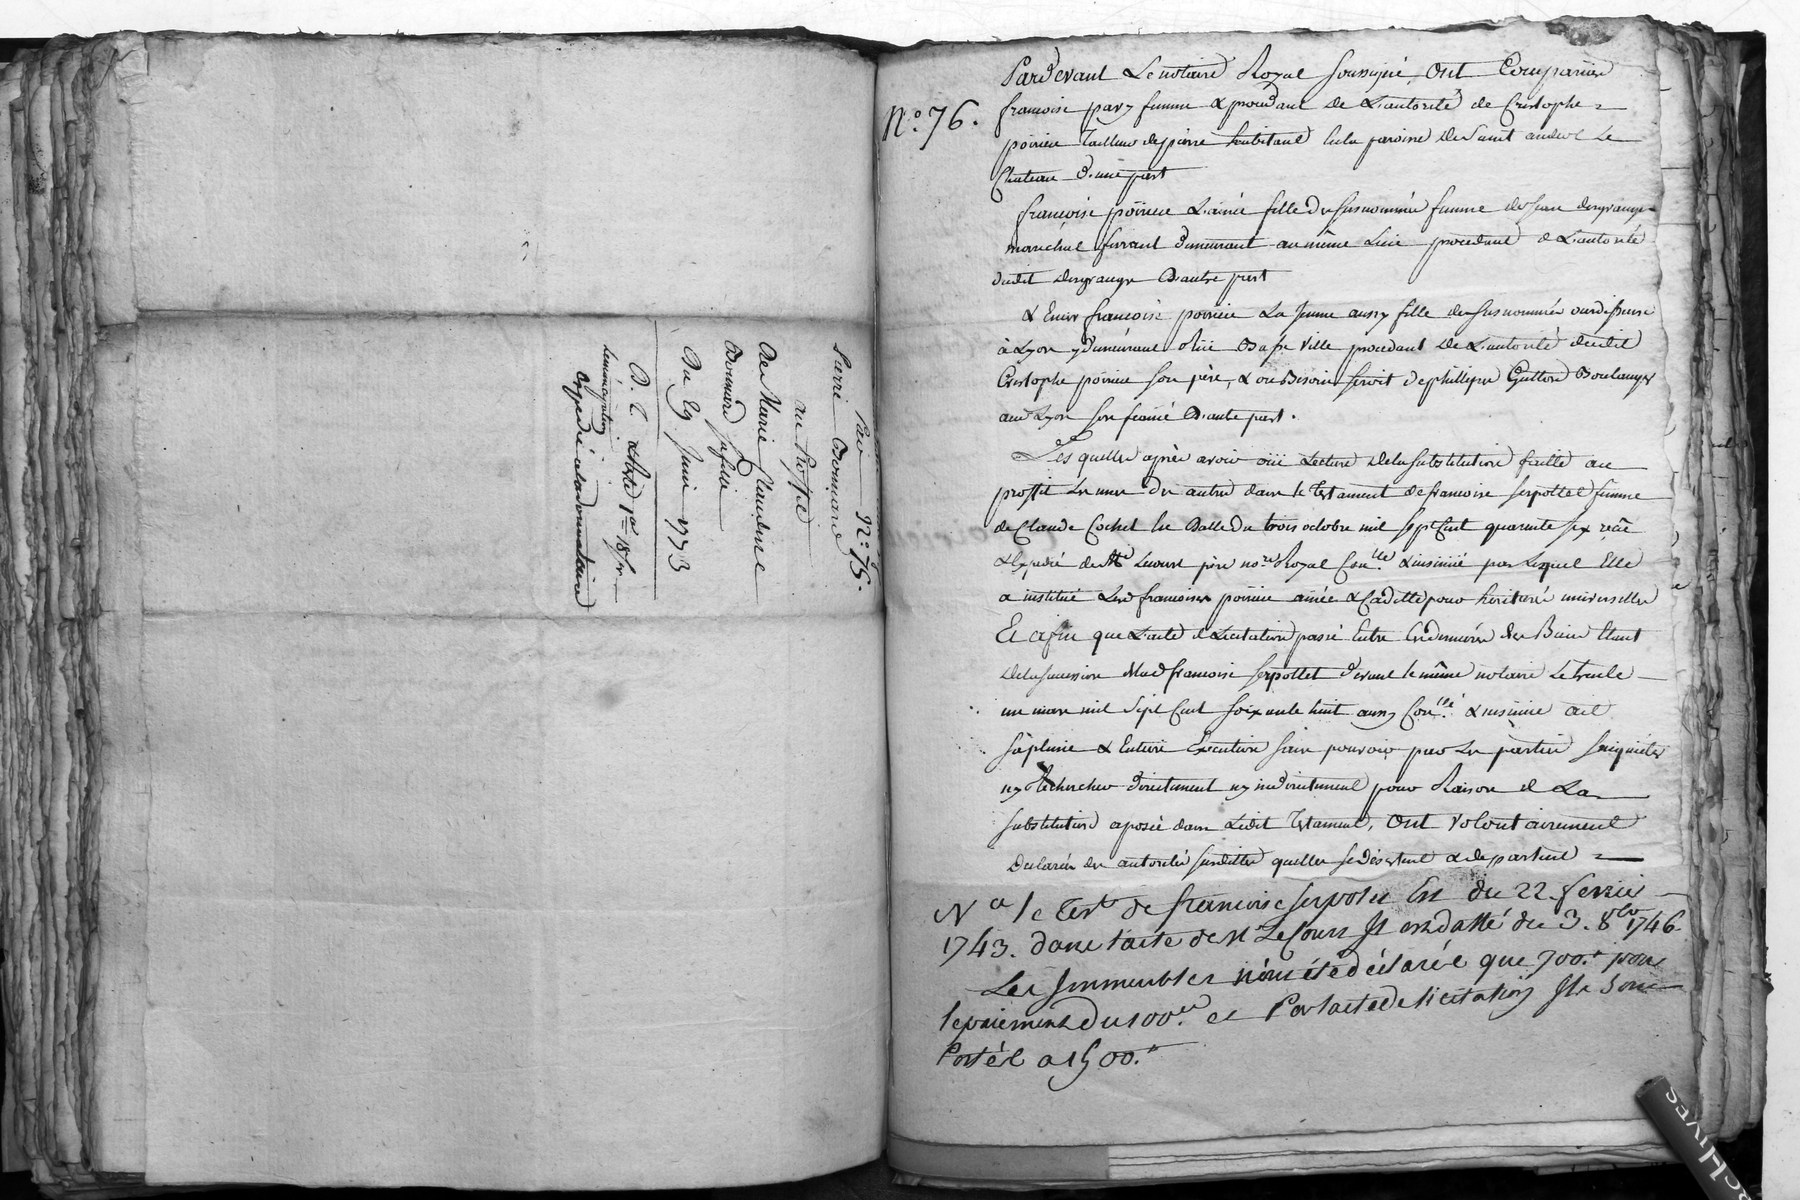 Paié N.° 75.
Pierre Bonnard
au proffit
de Marie Claudine
Bonnard sa fille
Du 29 Juin 1773
Expedié a la donnataire
N.° 76.
Pardevant Le notaire Royal soussigné, Ont Comparües
francoise pary femme & procedant de L'autorité de Cristophe =
poirieu Tailleur de pierre habitant en la paroisse de Saint andeol Le
Chateau d'une part
francoise poirieu L'ainée fille du susnommée femme de Jean desgrange
maréchal ferrant demeurant au même Lieu procedant de L'autorité
dudit desgrange D'autre part
& Encor francoise poirieu La Jeune aussy fille des susnommés ourdisseuse
à Lyon y demeurant rüe Basse ville procedant de L'autorité dudit
Cristophe poirieu son père, & ou Besoin seroit de phillipe Guttow Boulanger
aud Lyon son fiancé D'autre part.
Lesquelles après avoir oüi Lecture de la substitution faitte au
proffit Les unes des autres dans le testament de francoise serpollet femme
de Claude Cochet en Datte du trois octobre mil sept Cent quarante six reçu
& Expedié de Me Lecourt père no.re Royal Con.llé & insinué par Lequel Elle
a institué Lesd francoises poirieu ainée & Cadette pour heritieres universelles
Et afin que L'acte de Licitation passé Entre Ces dernières des Biens Etant
de la succession de lad francoise serpollet devant le même notaire Le trente
un mars mil Sept Cent soixante huit aussy Con.llé & insinué ait
sa pleine & Entiere Execution sans pouvoir par Les parties s'inquieter
ny Rechercher directement ny indirectement pour Raison de La
substitution aposée dans Ledit Testament, Ont volontairement
declarées des autorités susdittes quelles se désistent & departent =
Na le Test de francoise serpolet Est du 22 fevrier
1743. dans l'acte de Mr Lecourt Il est datté du 3. 8bre 1746.
Les Immeubles n'ont été déclarés que 700.# pour
le paiement du 100.e et Par l'acte de licitation Ils sont
Portés a 1500.#